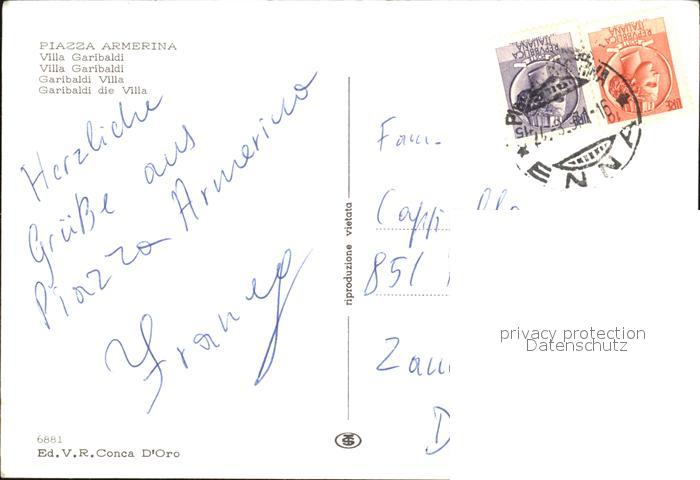 PIAZZA ARMERINA
Villa Garibaldi
Villa Garibaldi
Garibaldi Villa
Garibaldi die Villa
Herzliche
Grüße aus
Piazza Armerina
6881
Ed.V.R.Conca D'Oro
riproduzione vietata
REPVBBLICA
ITALIANA
LIRE 15
REPVBBLICA
ITALIANA
LIRE
ENNA
Fam.
851
D
privacy protection
Datenschutz